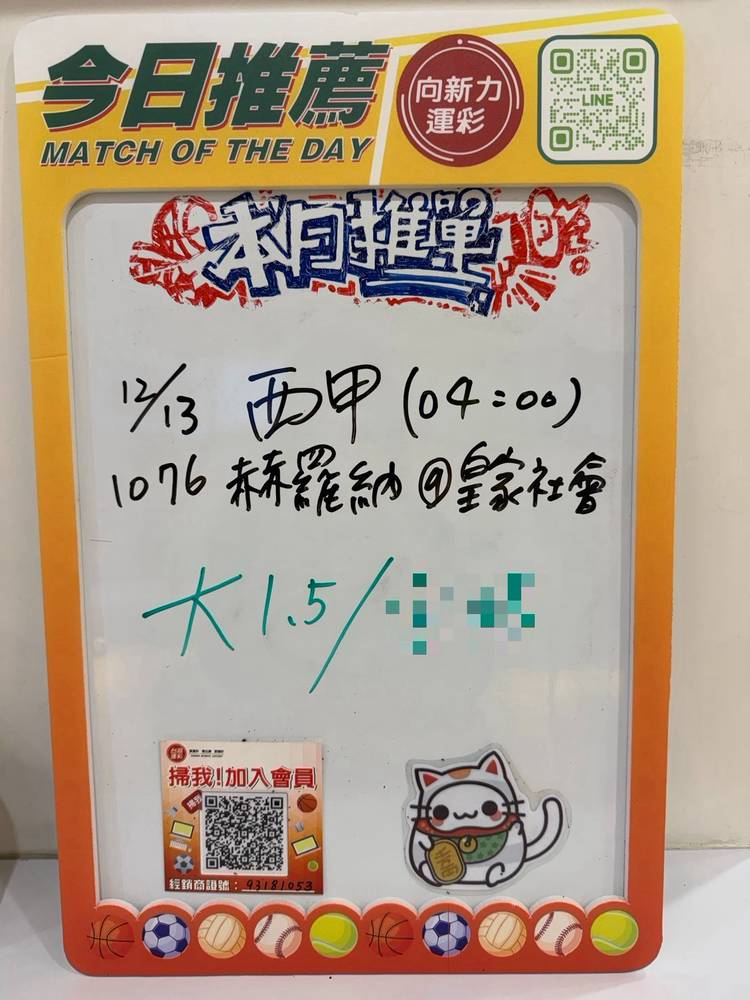 今日推薦
MATCH OF THE DAY
向新力
運彩
LINE
本月推單
12/13 西甲 (04:00)
1076 赫羅納 @ 皇家社會
大 1.5 /
掃我!加入會員
經銷商證號：93181053